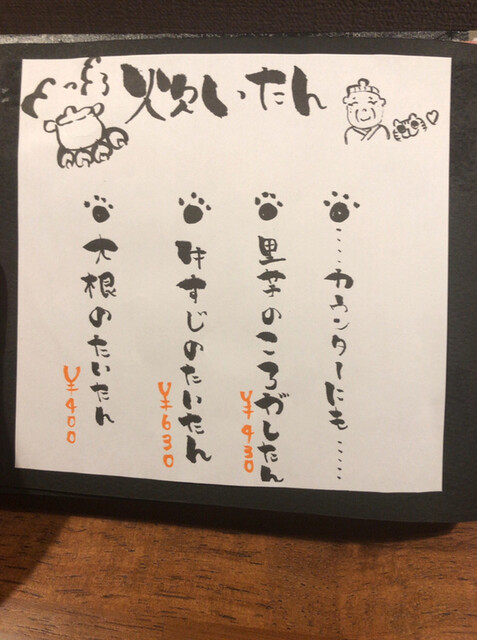 とろとろ 炊いたん
…カウンターにも……
里芋のころがしたん
¥430
牛すじのたいたん
¥630
大根のたいたん
¥400